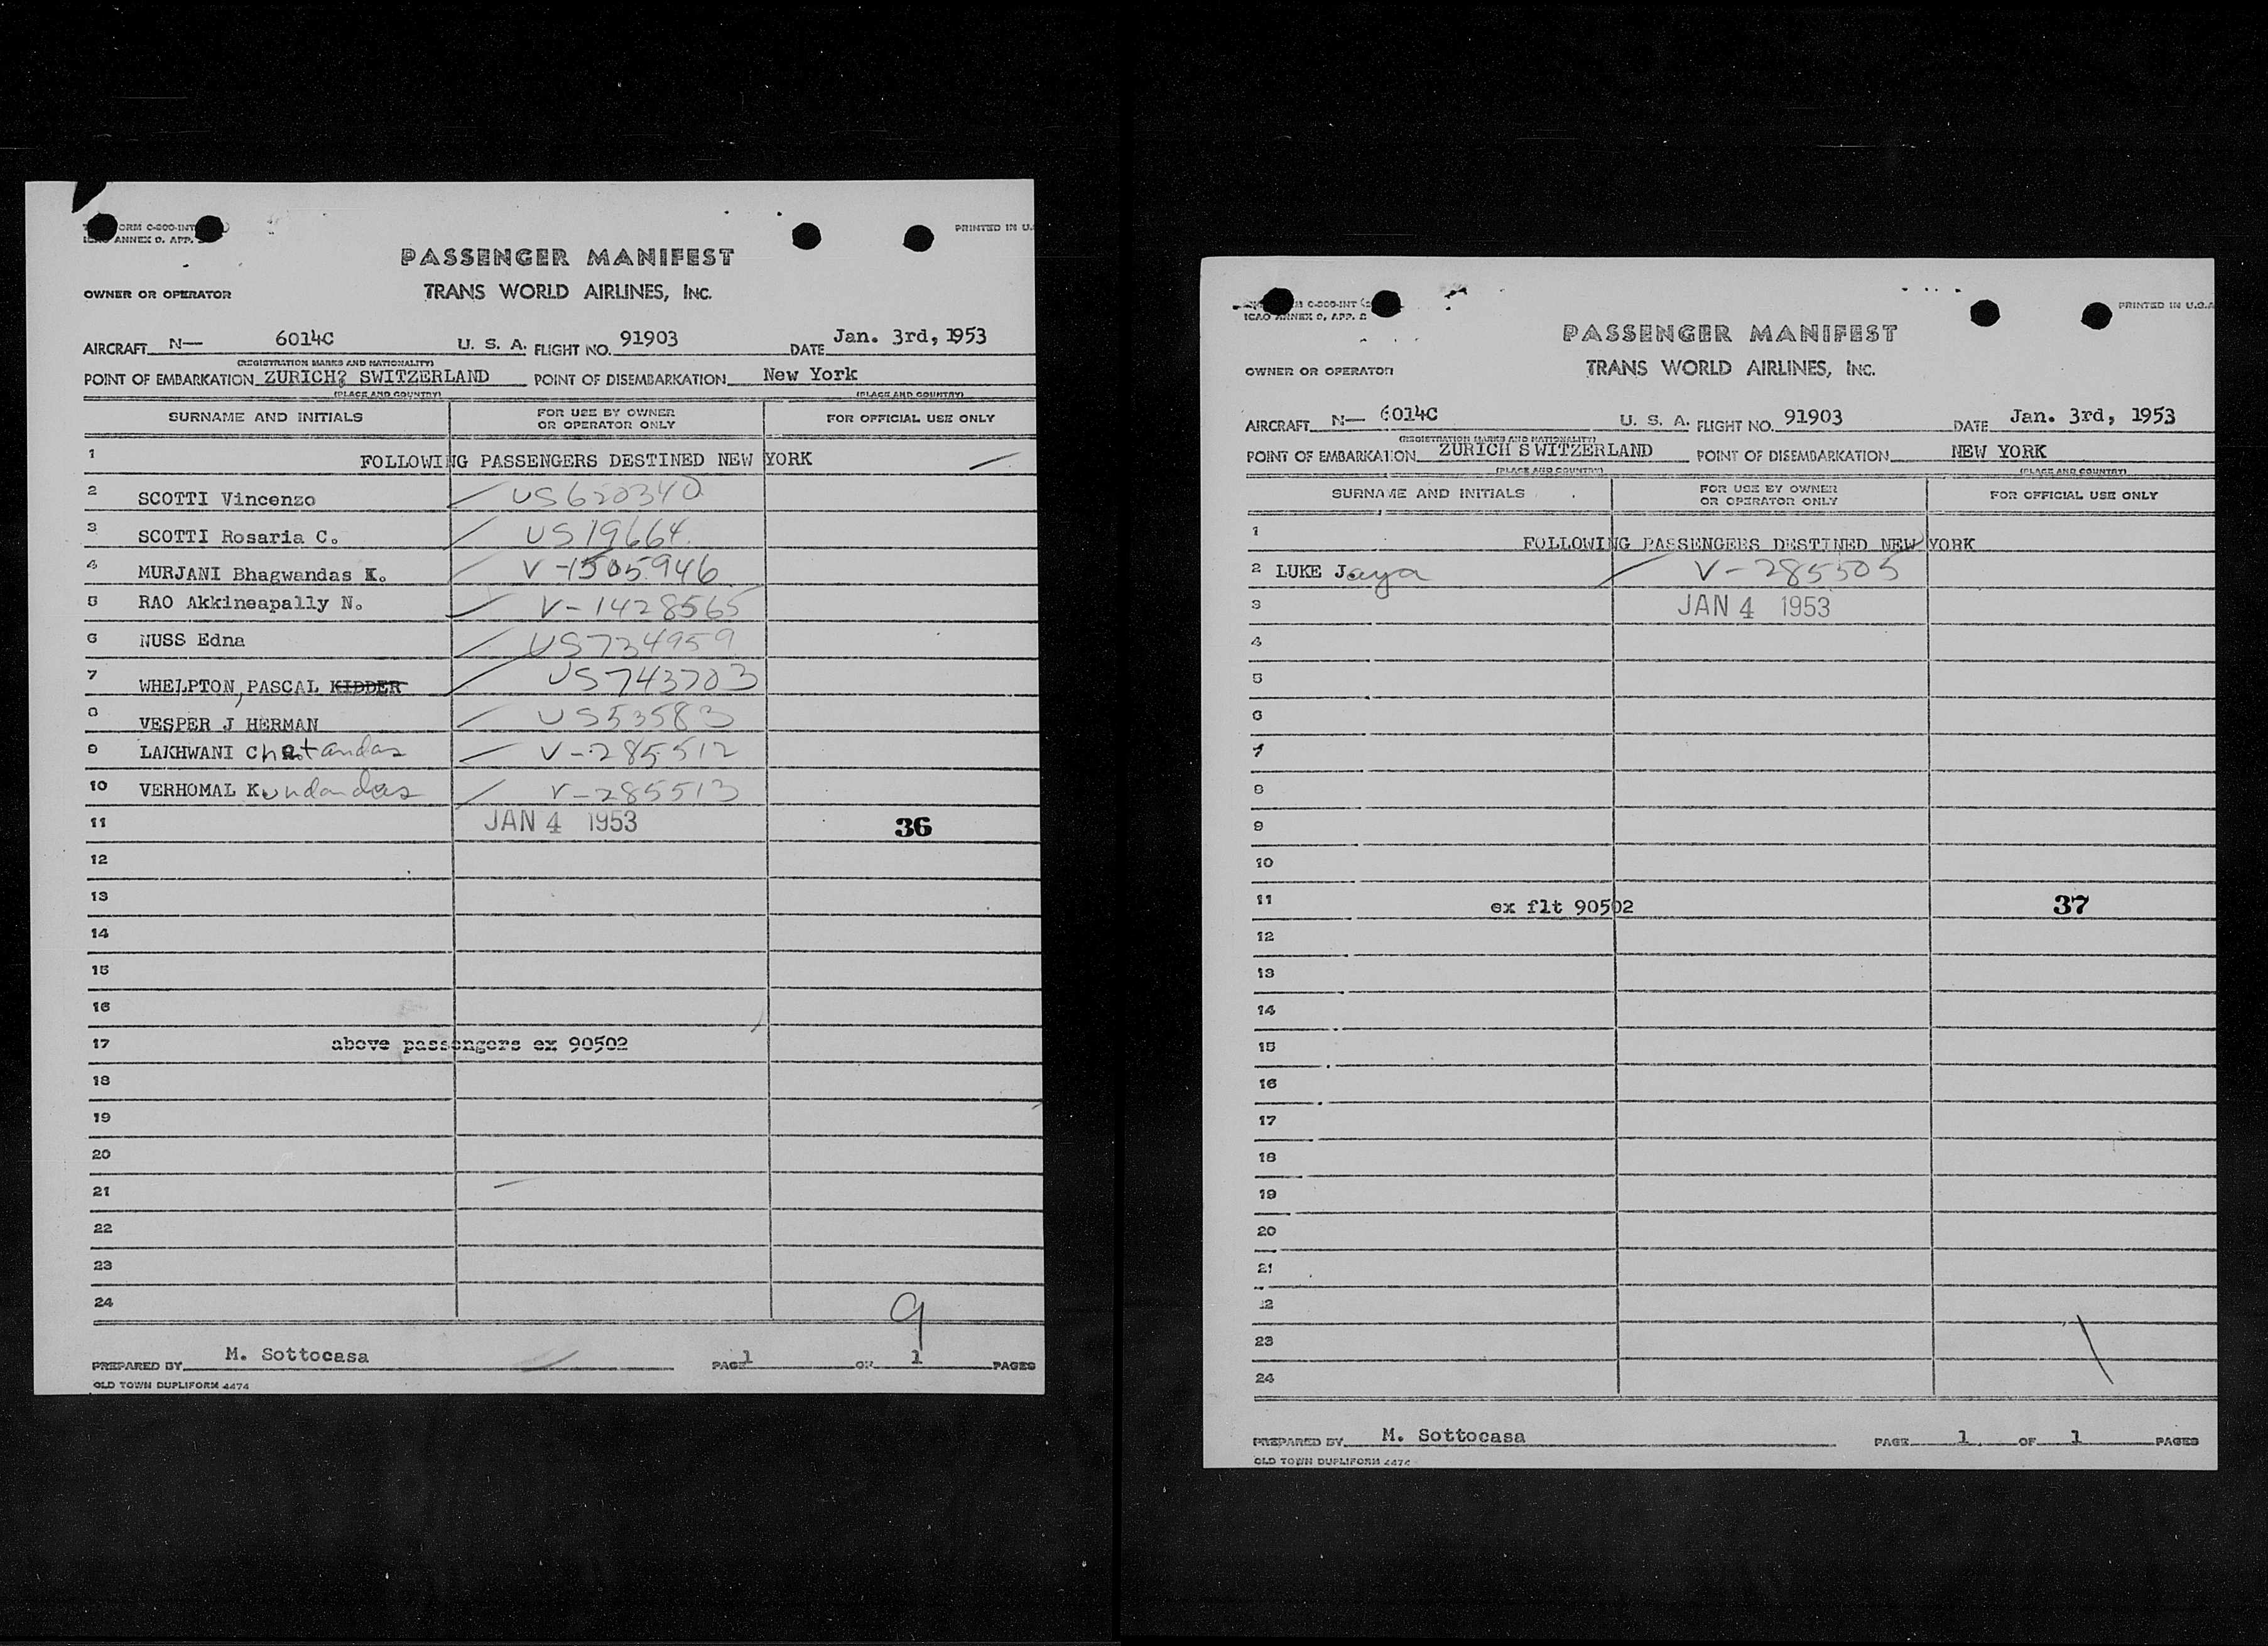 ORM C-800-INT
ANNEX 9. APP.
PRINTED IN U.
PASSENGER MANIFEST
OWNER OR OPERATOR TRANS WORLD AIRLINES, INC.
AIRCRAFT N— 6014C U. S. A. FLIGHT NO. 91903 DATE Jan. 3rd, 1953
(REGISTRATION MARKS AND NATIONALITY)
POINT OF EMBARKATION ZURICH? SWITZERLAND POINT OF DISEMBARKATION New York
(PLACE AND COUNTRY) (PLACE AND COUNTRY)
SURNAME AND INITIALS FOR USE BY OWNER OR OPERATOR ONLY FOR OFFICIAL USE ONLY
1 FOLLOWING PASSENGERS DESTINED NEW YORK
2 SCOTTI Vincenzo US620340
3 SCOTTI Rosaria C. US19664
4 MURJANI Bhagwandas K. V-1505946
5 RAO Akkineapally N. V-1428565
6 NUSS Edna US734959
7 WHELPTON, PASCAL KIDDER US743703
8 VESPER J HERMAN US53583
9 LAKHWANI Chatandas V-285512
10 VERHOMAL Kundandas V-285513
11 JAN 4 1953 36
12
13
14
15
16
17 above passengers ex 90502
18
19
20
21
22
23
24 9
PREPARED BY M. Sottocasa PAGE 1 OF 1 PAGES
OLD TOWN DUPLIFORM 4474
C-800-INT
ICAO ANNEX 9, APP.
PRINTED IN U.S.A
PASSENGER MANIFEST
OWNER OR OPERATOR TRANS WORLD AIRLINES, INC.
AIRCRAFT N— 6014C U. S. A. FLIGHT NO. 91903 DATE Jan. 3rd, 1953
(REGISTRATION MARKS AND NATIONALITY)
POINT OF EMBARKATION ZURICH S WITZERLAND POINT OF DISEMBARKATION NEW YORK
(PLACE AND COUNTRY) (PLACE AND COUNTRY)
SURNAME AND INITIALS FOR USE BY OWNER OR OPERATOR ONLY FOR OFFICIAL USE ONLY
1 FOLLOWING PASSENGERS DESTINED NEW YORK
2 LUKE Jaya V-285505
3 JAN 4 1953
4
5
6
7
8
9
10
11 ex flt 90502 37
12
13
14
15
16
17
18
19
20
21
22
23
24
PREPARED BY M. Sottocasa PAGE 1 OF 1 PAGES
OLD TOWN DUPLIFORM 4474